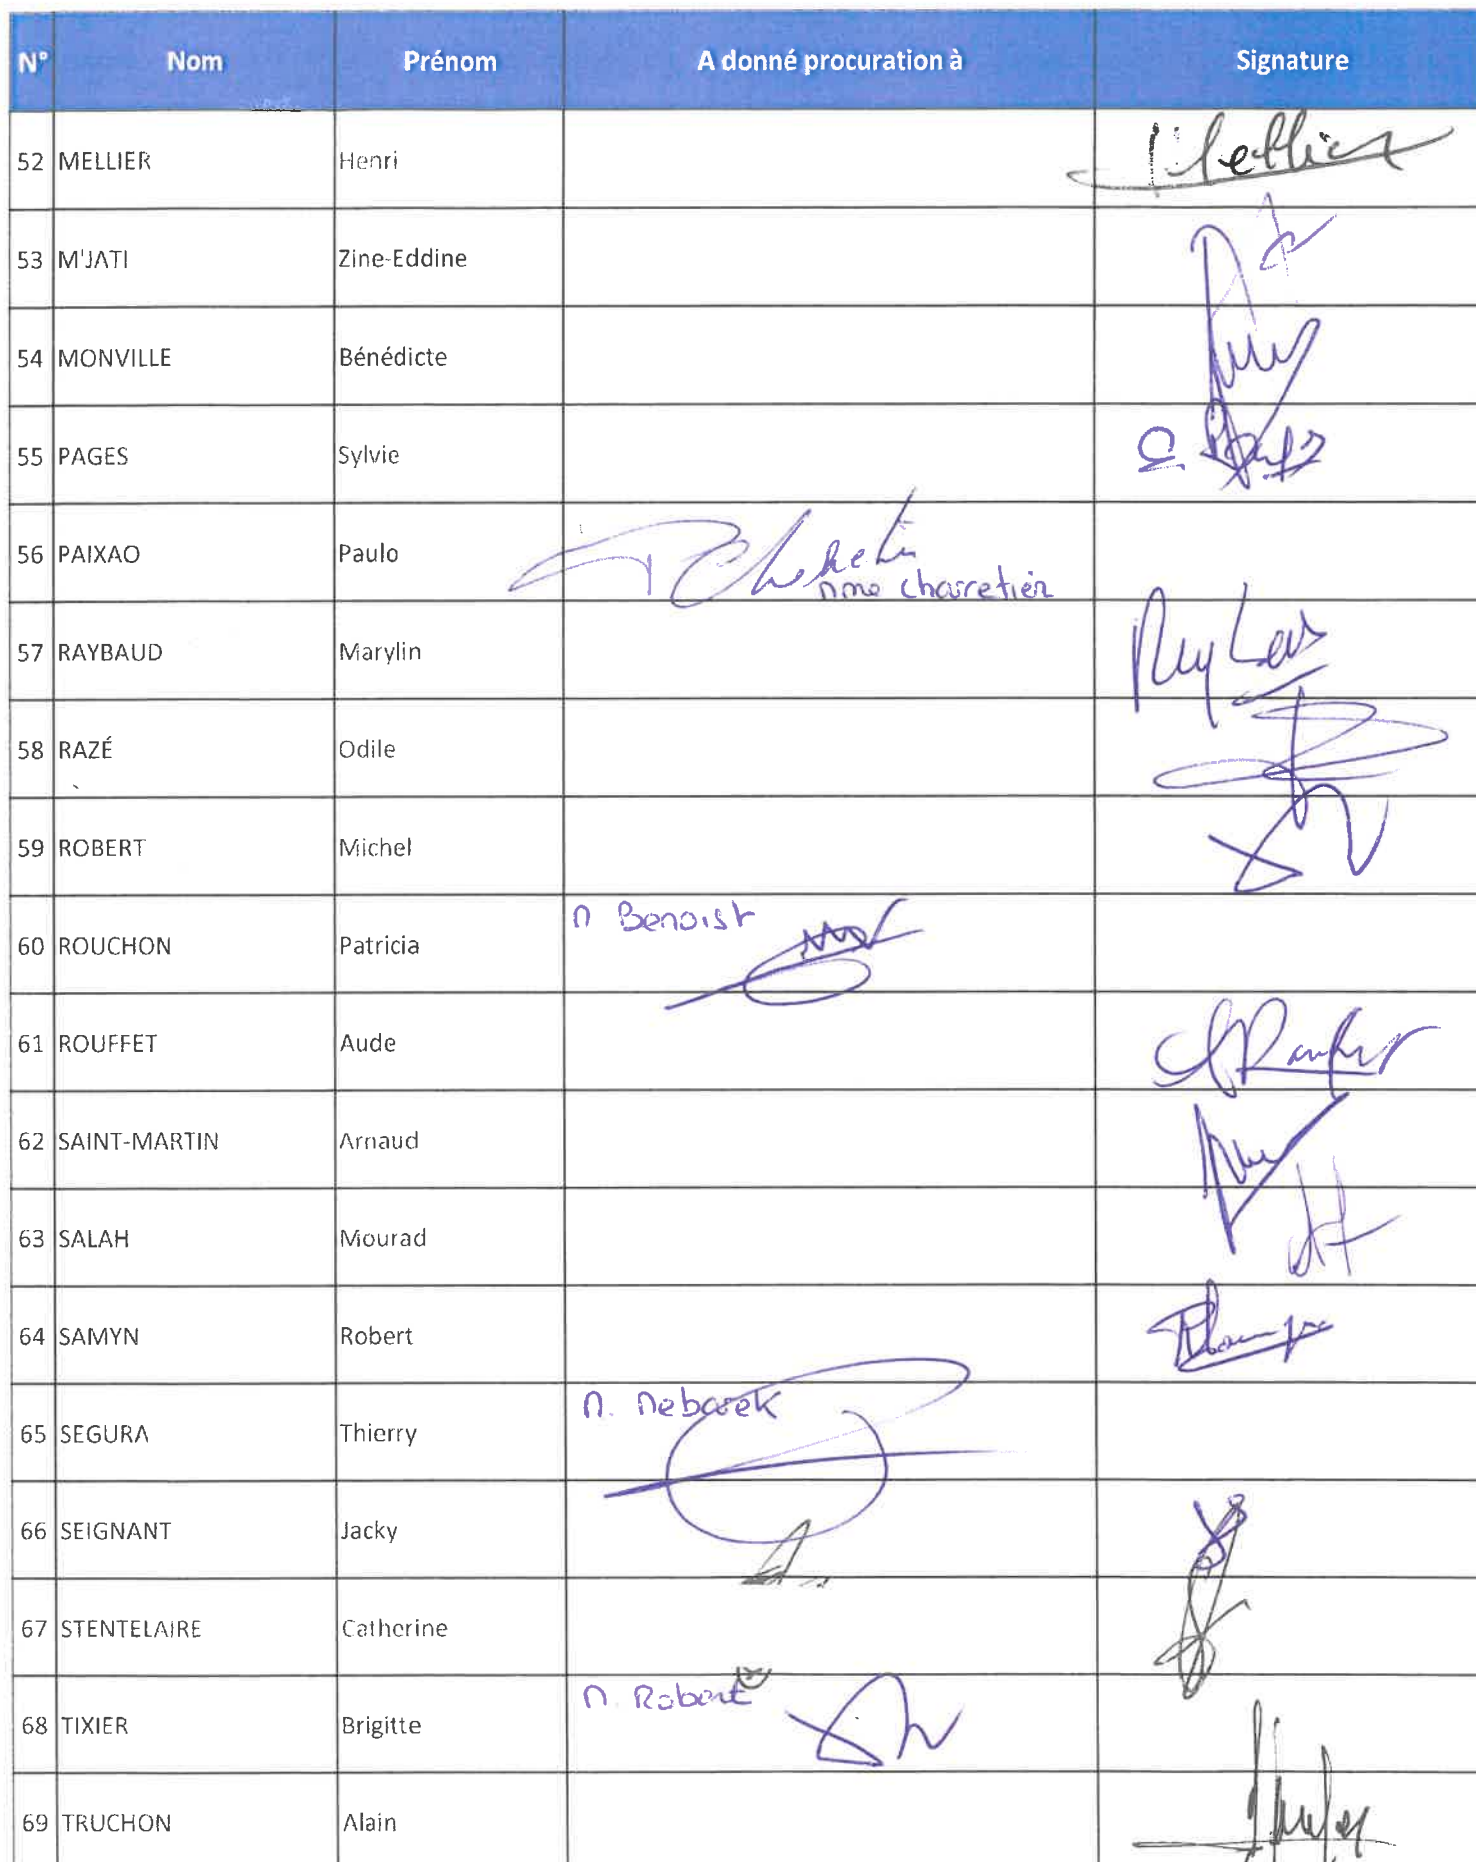 N° Nom Prénom A donné procuration à Signature
52 MELLIER Henri Mellier
53 M'JATI Zine-Eddine
54 MONVILLE Bénédicte
55 PAGES Sylvie
56 PAIXAO Paulo Mme Charretier
57 RAYBAUD Marylin
58 RAZÉ Odile
59 ROBERT Michel
60 ROUCHON Patricia M Benoist
61 ROUFFET Aude
62 SAINT-MARTIN Arnaud
63 SALAH Mourad
64 SAMYN Robert
65 SEGURA Thierry M. Mebarek
66 SEIGNANT Jacky
67 STENTELAIRE Catherine
68 TIXIER Brigitte M. Robert
69 TRUCHON Alain